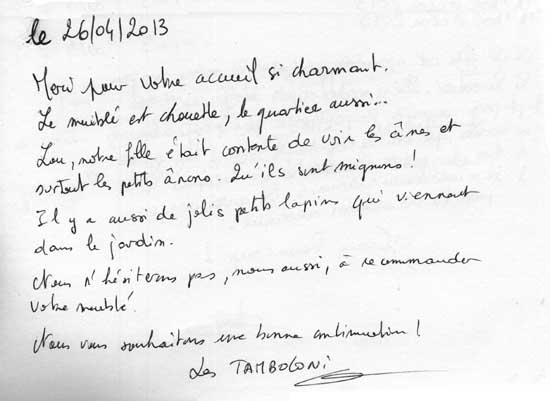 le 26/04/2013
Merci pour votre accueil si charmant.
Le meublé est chouette, le quartier aussi...
Lou, notre fille était contente de voir les ânes et
surtout les petits ânons. Qu'ils sont mignons !
Il y a aussi de jolis petits lapins qui viennent
dans le jardin.
Nous n'hésiterons pas, nous aussi, à recommander
votre meublé.
Nous vous souhaitons une bonne continuation !
Les TAMBOLONI